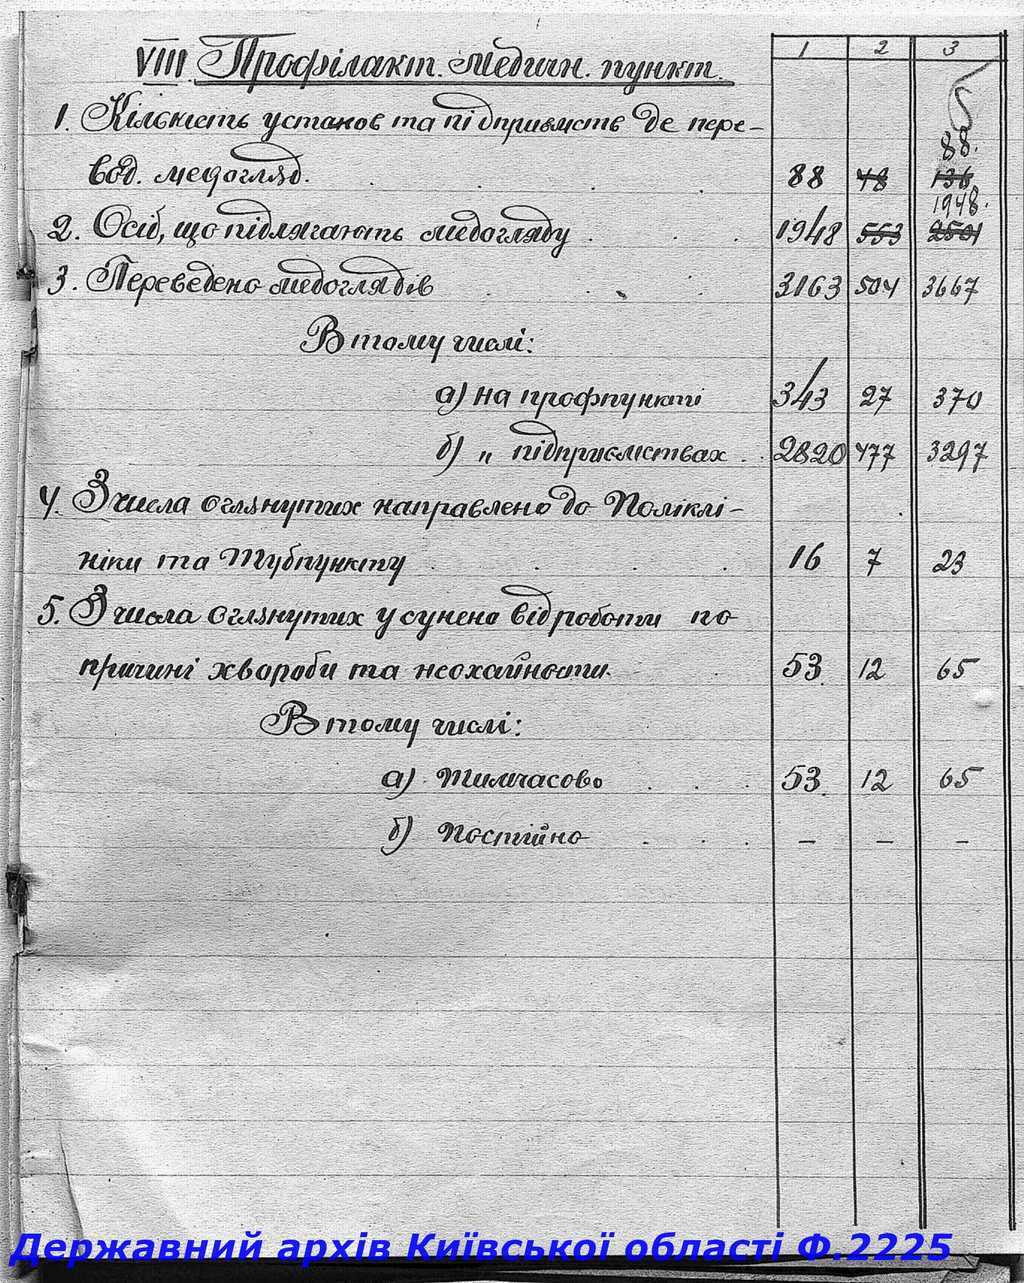 1 2 3
VIII Профілакт. Медичн. пункт.
1. Кількість установ та підприємств де пере-
88.
вод. медогляд. 88 48 136
1948.
2. Осіб, що підлягають медогляду 1948 553 2501
3. Переведено медоглядів 3163 504 3667
В тому числі:
а) на профпункті 343 27 370
б) „ підприємствах 2820 477 3297
4. З числа оглянутих направлено до Поліклі-
ніки та Тубпункту 16 7 23
5. З числа оглянутих усунено від роботи по
причині хвороби та неохайности. 53 12 65
В тому числі:
а) Тимчасово 53 12 65
б) Постійно – – –
Державний архів Київської області Ф.2225